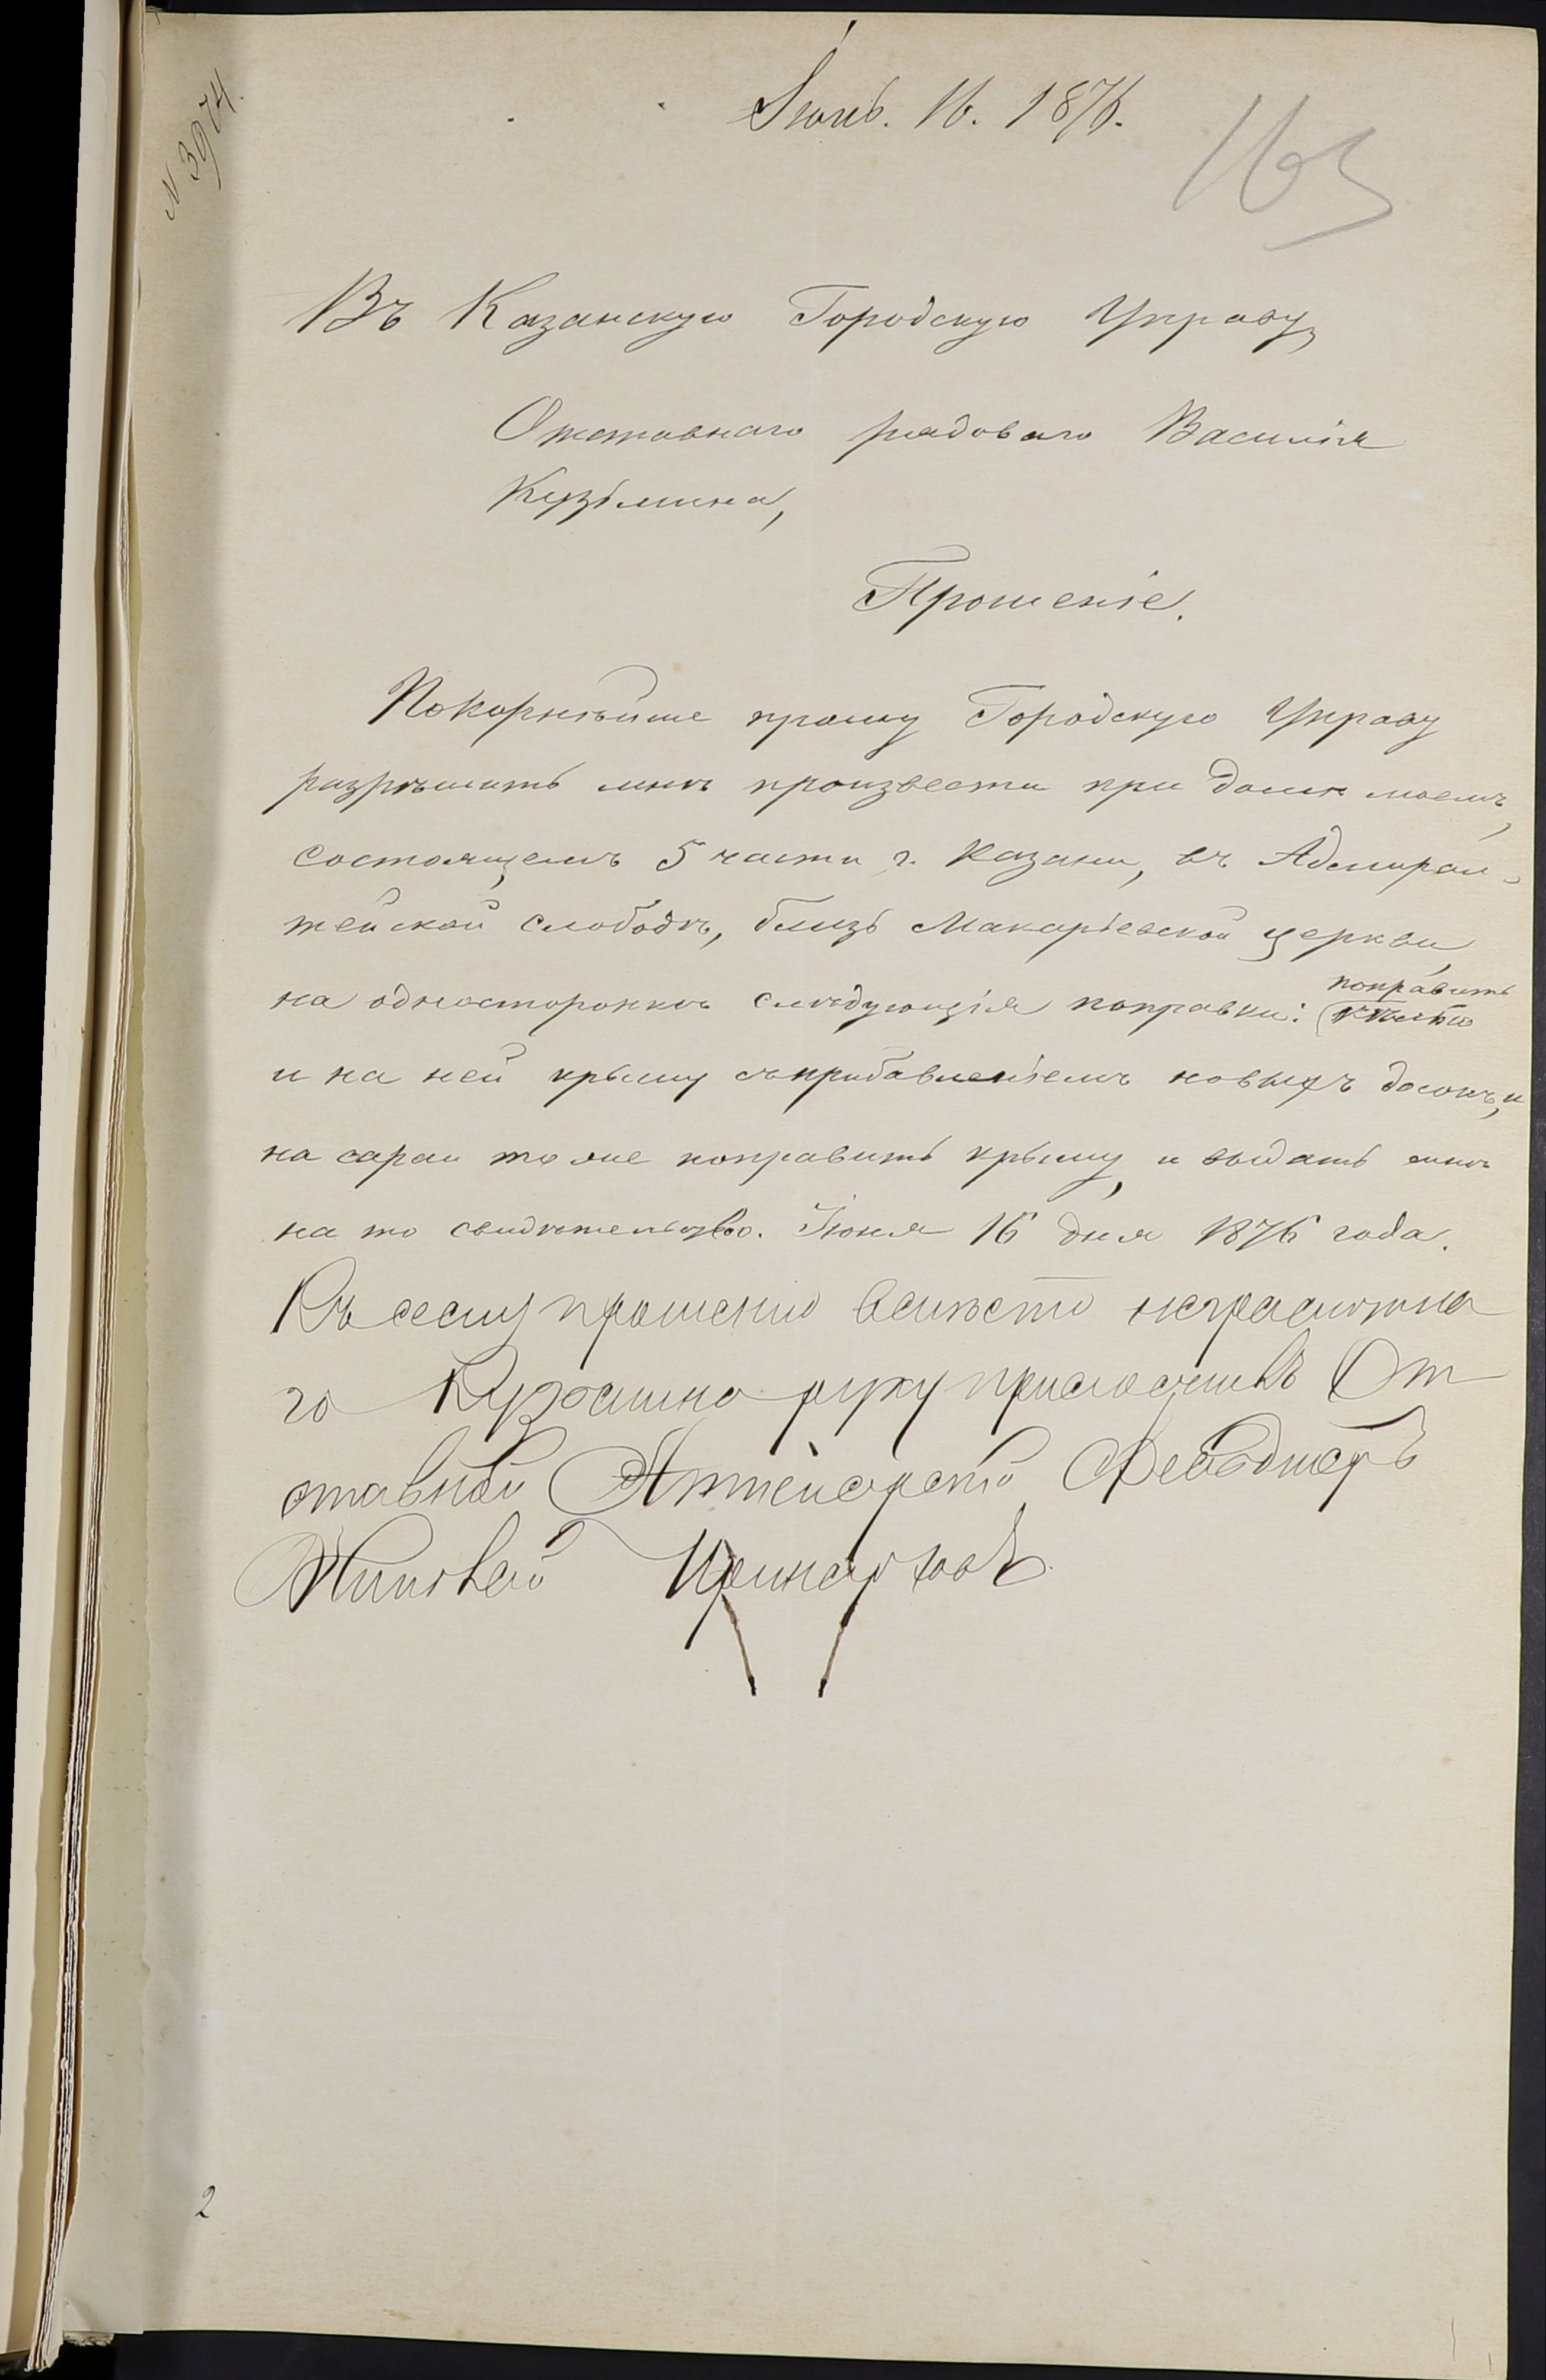 N 3974.
Іюнь. 16. 1876.
163
Въ Казанскую Городскую Управу,
Отставнаго рядоваго Василія
Кузьмина,
Прошеніе.
Покорнѣйше прошу Городскую Управу
разрѣшить мнѣ произвести при домѣ моемъ,
состоящемъ 5 части г. Казани, въ Адмирал-
тейской слободѣ, близь Макарьевской церкви
на односторонкѣ слѣдующія поправки: поправить
и на ней крышу съ прибавленіемъ новыхъ досокъ, и
на сараи то же поправить крышу, и выдать мнѣ
на то свидѣтельство. Іюня 16 дня 1876 года.
Къ сему прошенію вмѣсто неграмотна
го Кузмина руку приложилъ От
ставной
2